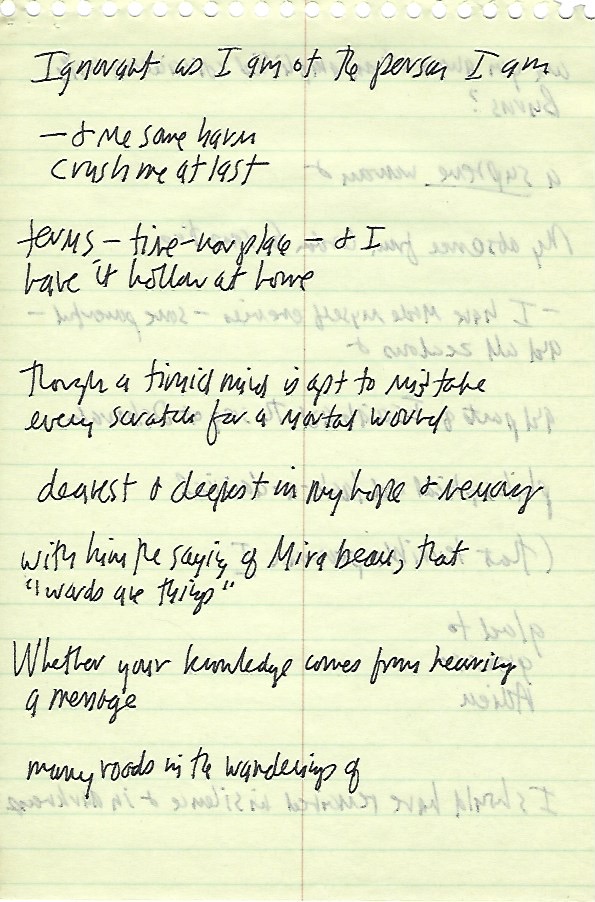 Ignorant as I am of the person I am
– & me some harm
crush me at last
terms – time – nor place – & I
have it hollow at home
though a timid mind is apt to mistake
every scratch for a mortal wound
dearest & deepest in my hope & memory
with him the saying of Mirabeau, that
"words are things"
Whether your knowledge comes from hearing
a message
many roads in the wanderings of